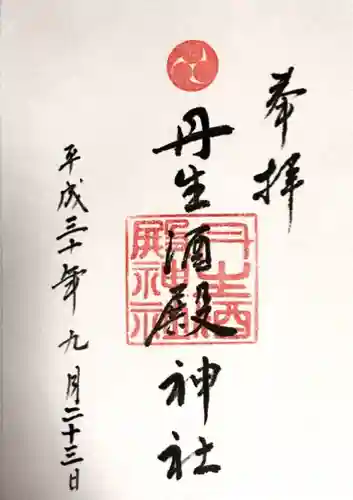 奉拝
丹生酒殿神社
丹生酒殿神社
平成三十年九月二十三日